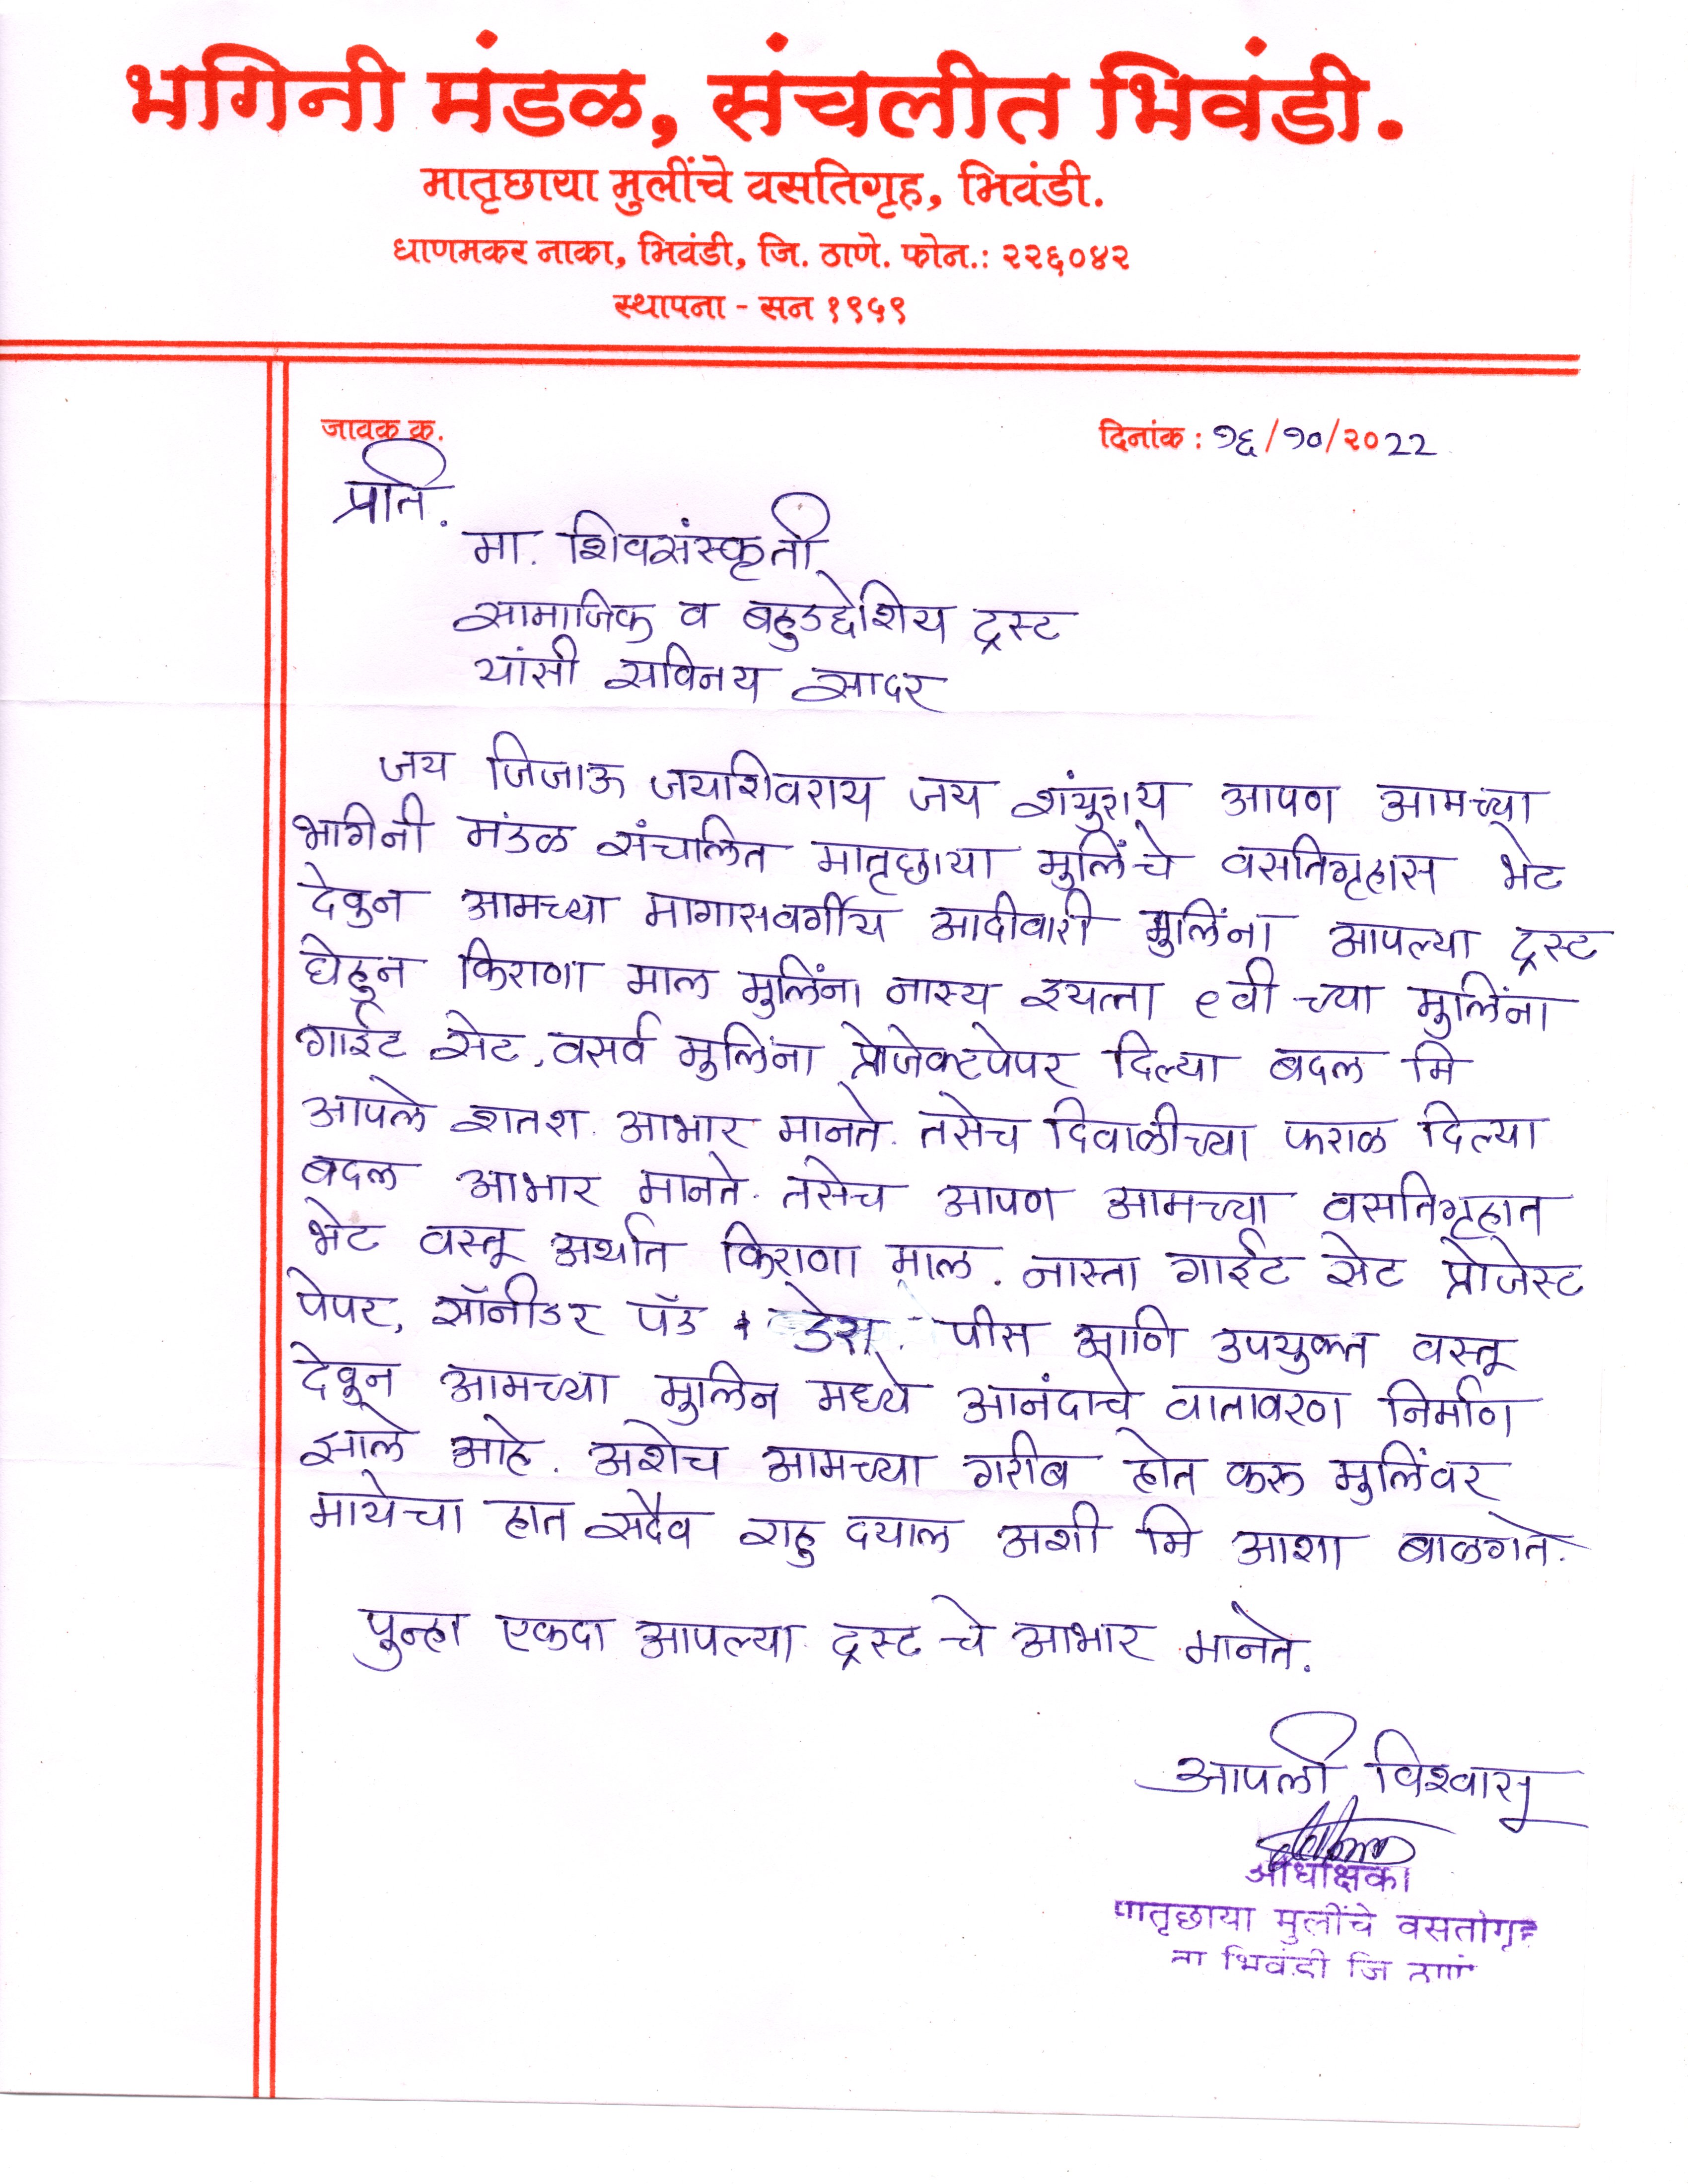 भगिनी मंडळ, संचलीत भिवंडी.
मातृछाया मुलींचे वसतिगृह, भिवंडी.
धाणमकर नाका, भिवंडी, जि. ठाणे. फोन.: २२६०४२
स्थापना - सन १९५९
जावक क्र. दिनांक : १६/१०/२०२२
प्रति.
मा. शिवसंस्कृती
सामाजिक व बहुउद्देशिय ट्रस्ट
यांसी सविनय सादर
जय जिजाऊ जयशिवराय जय शंभुराय आपण आमच्या
भगिनी मंडळ संचलित मातृछाया मुलिंचे वसतिगृहास भेट
देवुन आमच्या मागासवर्गीय आदीवासी मुलिंना आपल्या ट्रस्ट
घेहून किराणा माल मुलिंना नास्य इयत्ता ९वी च्या मुलिंना
गाईट सेट, वसर्व मुलिंना प्रोजेक्टपेपर दिल्या बदल मि
आपले शतश. आभार मानते. तसेच दिवाळीच्या फराळ दिल्या
बदल आभार मानते. तसेच आपण आमच्या वसतिगृहात
भेट वस्तू अर्थात किराणा माल. नास्ता गाईट सेट प्रोजेस्ट
पेपर, सॉनीडर पॅड डेस. पीस आणि उपयुक्त वस्तू
देवून आमच्या मुलिन मध्ये आनंदाचे वातावरण निर्माण
झाले आहे. अशेच आमच्या गरीब होत करू मुलिंवर
मायेचा हात सदैव राहु दयाल अशी मि आशा बाळगते.
पुन्हा एकदा आपल्या ट्रस्ट चे आभार मानते.
आपली विश्वासू
अधीक्षिका
मातृछाया मुलींचे वसतीगृह
ता भिवंडी जि ठाणे